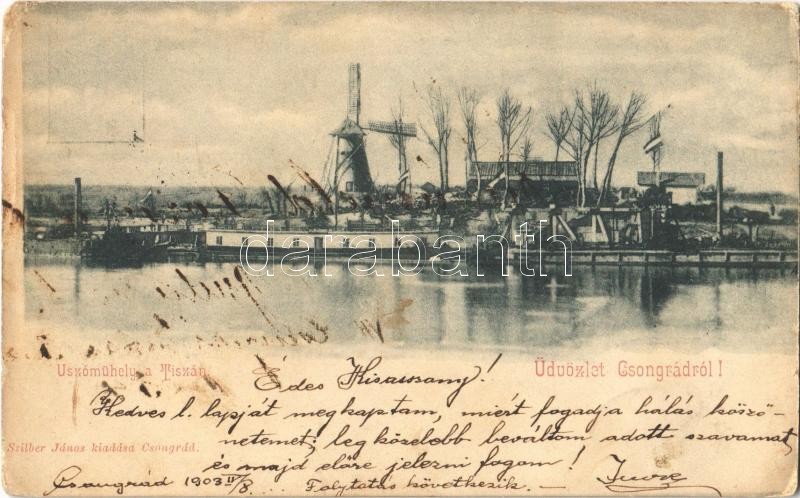 darabanth
Uszóműhely a Tiszán.
Üdvözlet Csongrádról!
Édes Kisasszony!
Kedves l. lapját megkaptam, miért fogadja hálás köszö-
netemet; legközelebb beváltom adott szavamat
Szilber János kiadása Csongrád.
és majd előre jelezni fogom!
Csongrád 1903 II/8... Folytatás következik.